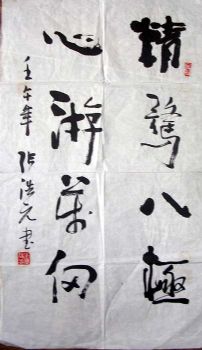 精骛八極
心游萬仞
壬午年 张浩元书